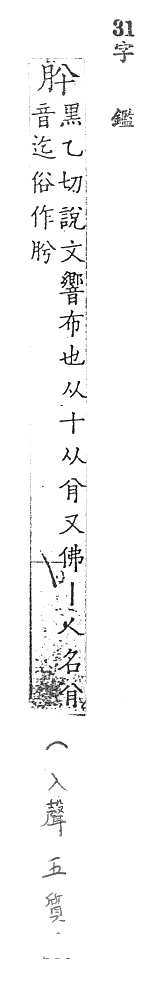 31字 鑑
肸
黑乙切說文響布也从十从㕯又佛丨人名㕯
音迄俗作肹
(入聲 五 質.